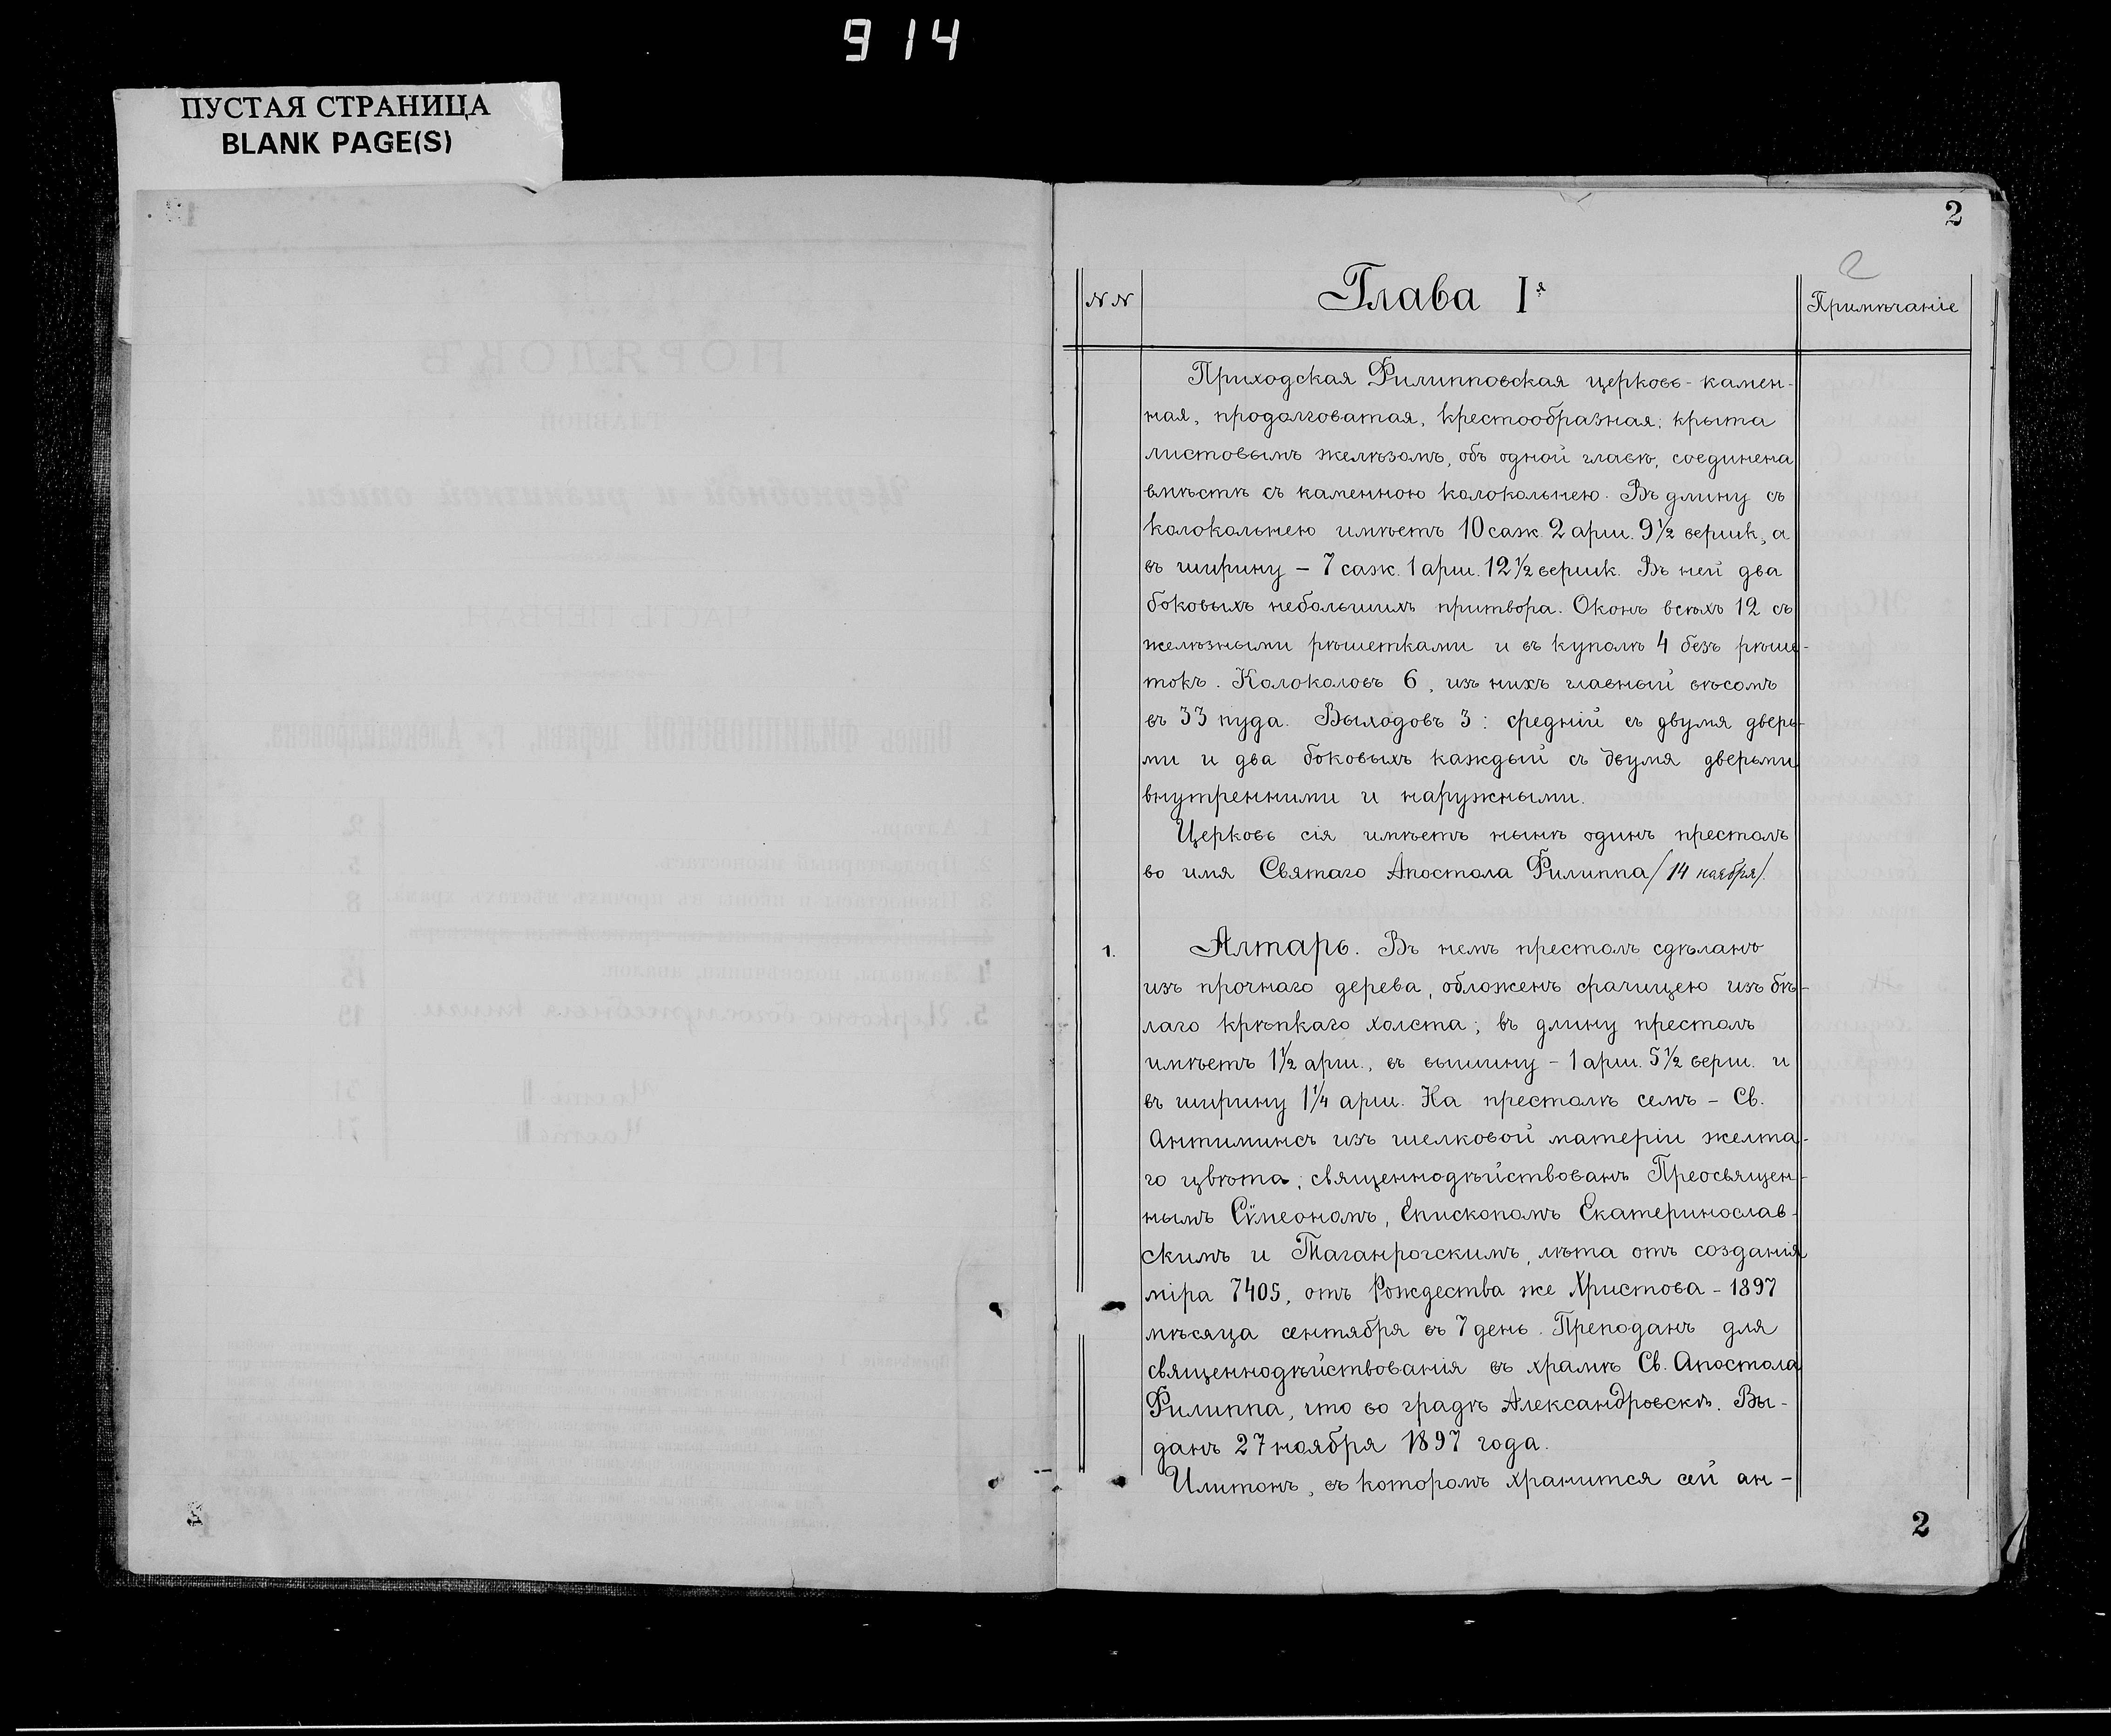 914
ПУСТАЯ СТРАНИЦА
BLANK PAGE(S)
2
2
NN
Глава Iя
Примѣчаніе
Приходская Филипповская церковь - камен-
ная, продолговатая, крестообразная; крыта
листовымъ желѣзомъ, объ одной главѣ, соединена
вмѣстѣ съ каменною колокольнею. Въ длину съ
колокольнею имѣетъ 10 саж. 2 арш. 9½ вершк, а
въ ширину – 7 саж. 1 арш. 12½ вершк. Въ ней два
боковыхъ небольшихъ притвора. Оконъ всѣхъ 12 съ
желѣзными рѣшетками и въ куполѣ 4 безъ рѣше-
токъ. Колоколовъ 6, изъ нихъ главный вѣсомъ
въ 33 пуда. Выходовъ 3: средній съ двумя дверь-
ми и два боковыхъ каждый съ двумя дверьми
внутренними и наружными.
Церковь сія имѣетъ нынѣ одинъ престолъ
во имя Святаго Апостола Филиппа /14 ноября/.
1.
Алтарь. Въ немъ престолъ сдѣланъ
изъ прочнаго дерева, обложенъ срачицею изъ бѣ-
лаго крѣпкаго холста; въ длину престолъ
имѣетъ 1½ арш., въ вышину – 1 арш. 5½ верш. и
въ ширину 1¼ арш. На престолѣ семъ – Св.
Антиминсъ изъ шелковой матеріи желта-
го цвѣта; священнодѣйствованъ Преосвящен-
нымъ Сѵмеономъ, Епископомъ Екатеринослав-
скимъ и Таганрогскимъ, лѣта отъ созданія
міра 7405, отъ Рождества же Христова – 1897
мѣсяца сентября въ 7 день. Преподанъ для
священнодѣйствованія въ храмѣ Св. Апостола
Филиппа, что во градѣ Александровскѣ. Вы-
данъ 27 ноября 1897 года.
Илитонъ, въ которомъ хранится сей ан-
2